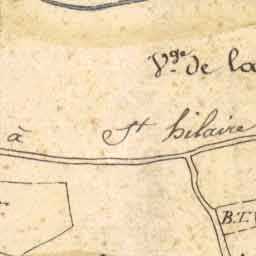 Vge. de la
à St hilaire
B.T.